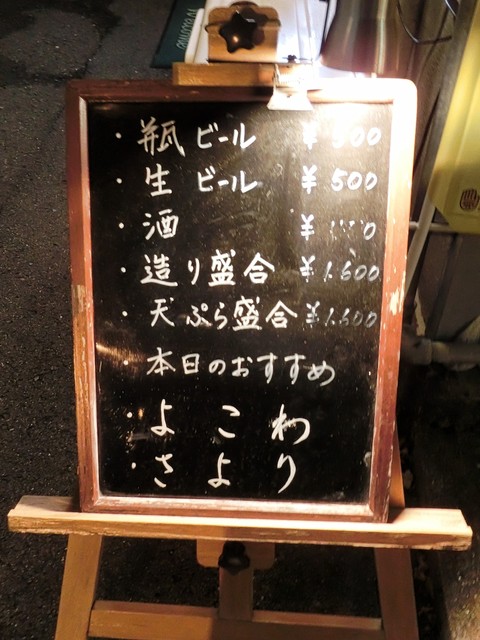 Welcome
・瓶ビール ¥
・生ビール ¥500
・酒 ¥
・造り盛合 ¥1.600
・天ぷら盛合 ¥1.600
本日のおすすめ
・よこわ
・さより